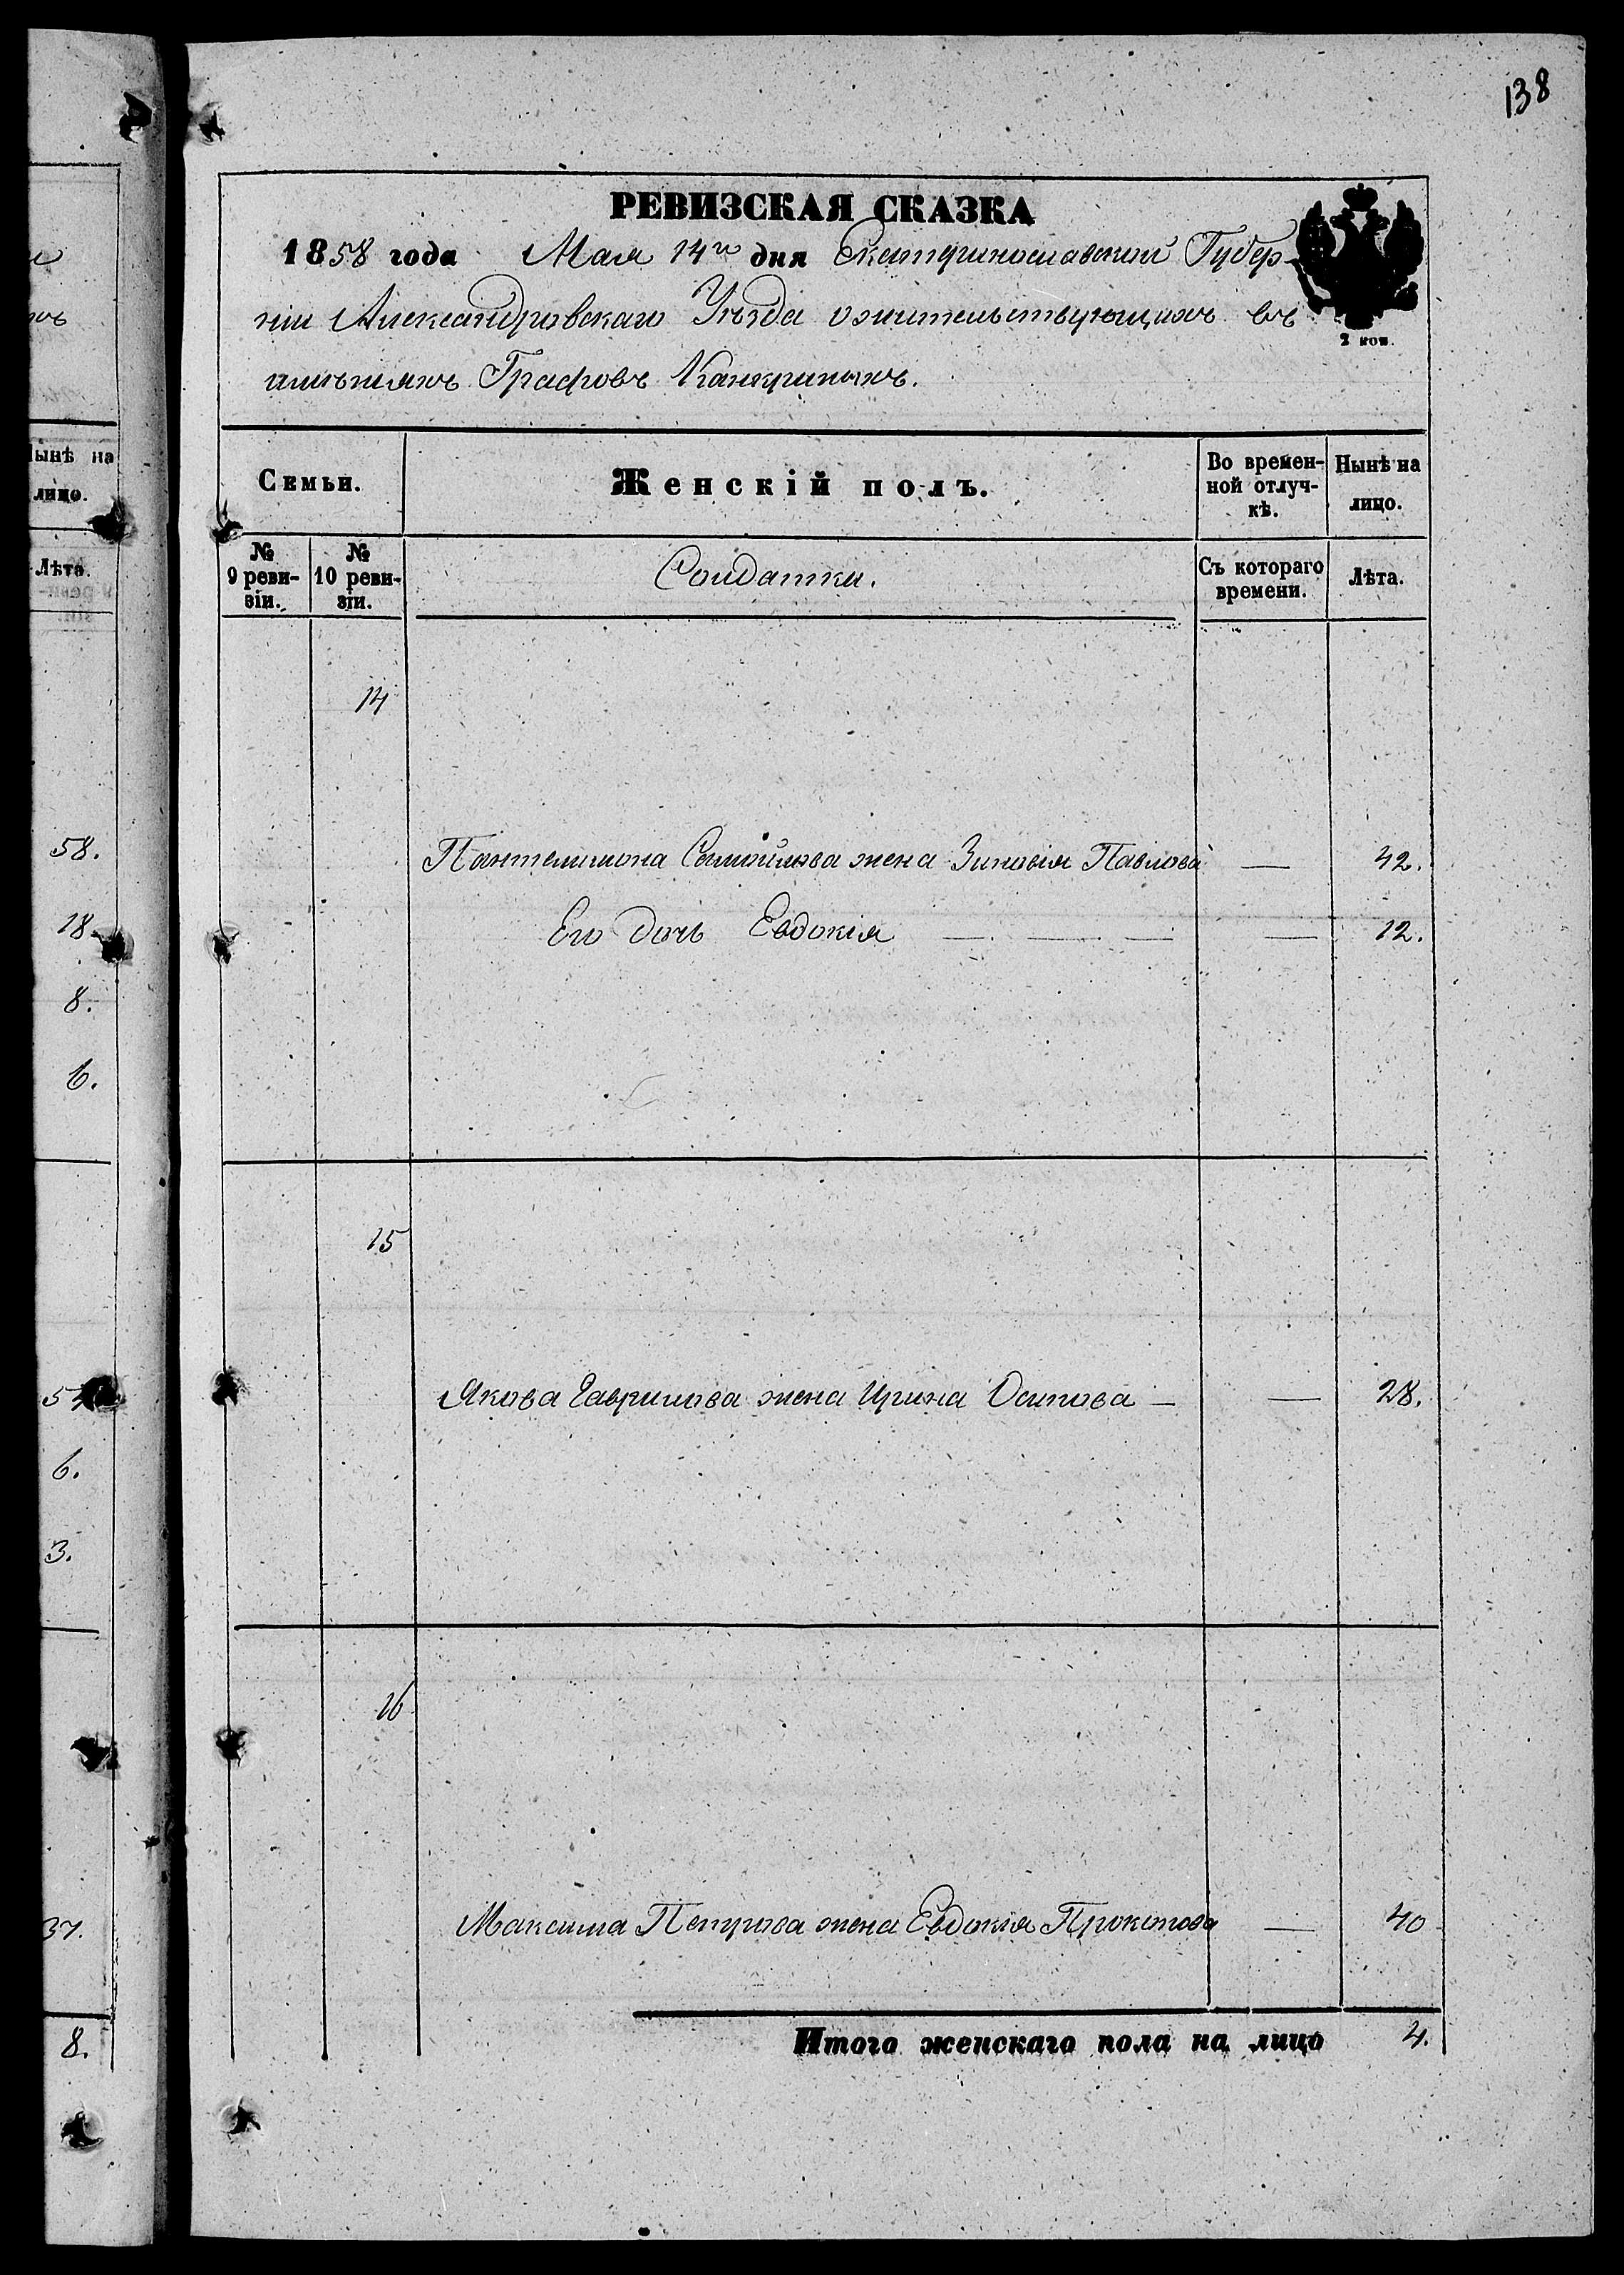 138
РЕВИЗСКАЯ СКАЗКА
1858 года Мая 14го дня Екатеринославской Губер-
нiи Александровскаго Уѣзда о жительствующихъ въ
имѣнiяхъ Графовъ Канкриныхъ.
2 коп.
Семьи. Женскій полъ. Во времен-ной отлуч-кѣ. Нынѣ на лицо.
№ 9 реви-зіи. № 10 реви-зіи. Солдатки. Съ котораго времени. Лѣта.
14
Пантелимона Самойлова жена Зиновія Павлова — 42.
Его дочь Евдокія — — — — 12.
15
Якова Гаврилова жена Ирина Осипова — — 28.
16
Максима Петрова жена Евдокія Прокопова — 40
Итого женскаго пола на лицо 4.
Нынѣ на
лицо.
Лѣта.
58.
18.
8.
6.
6.
3.
37.
8.